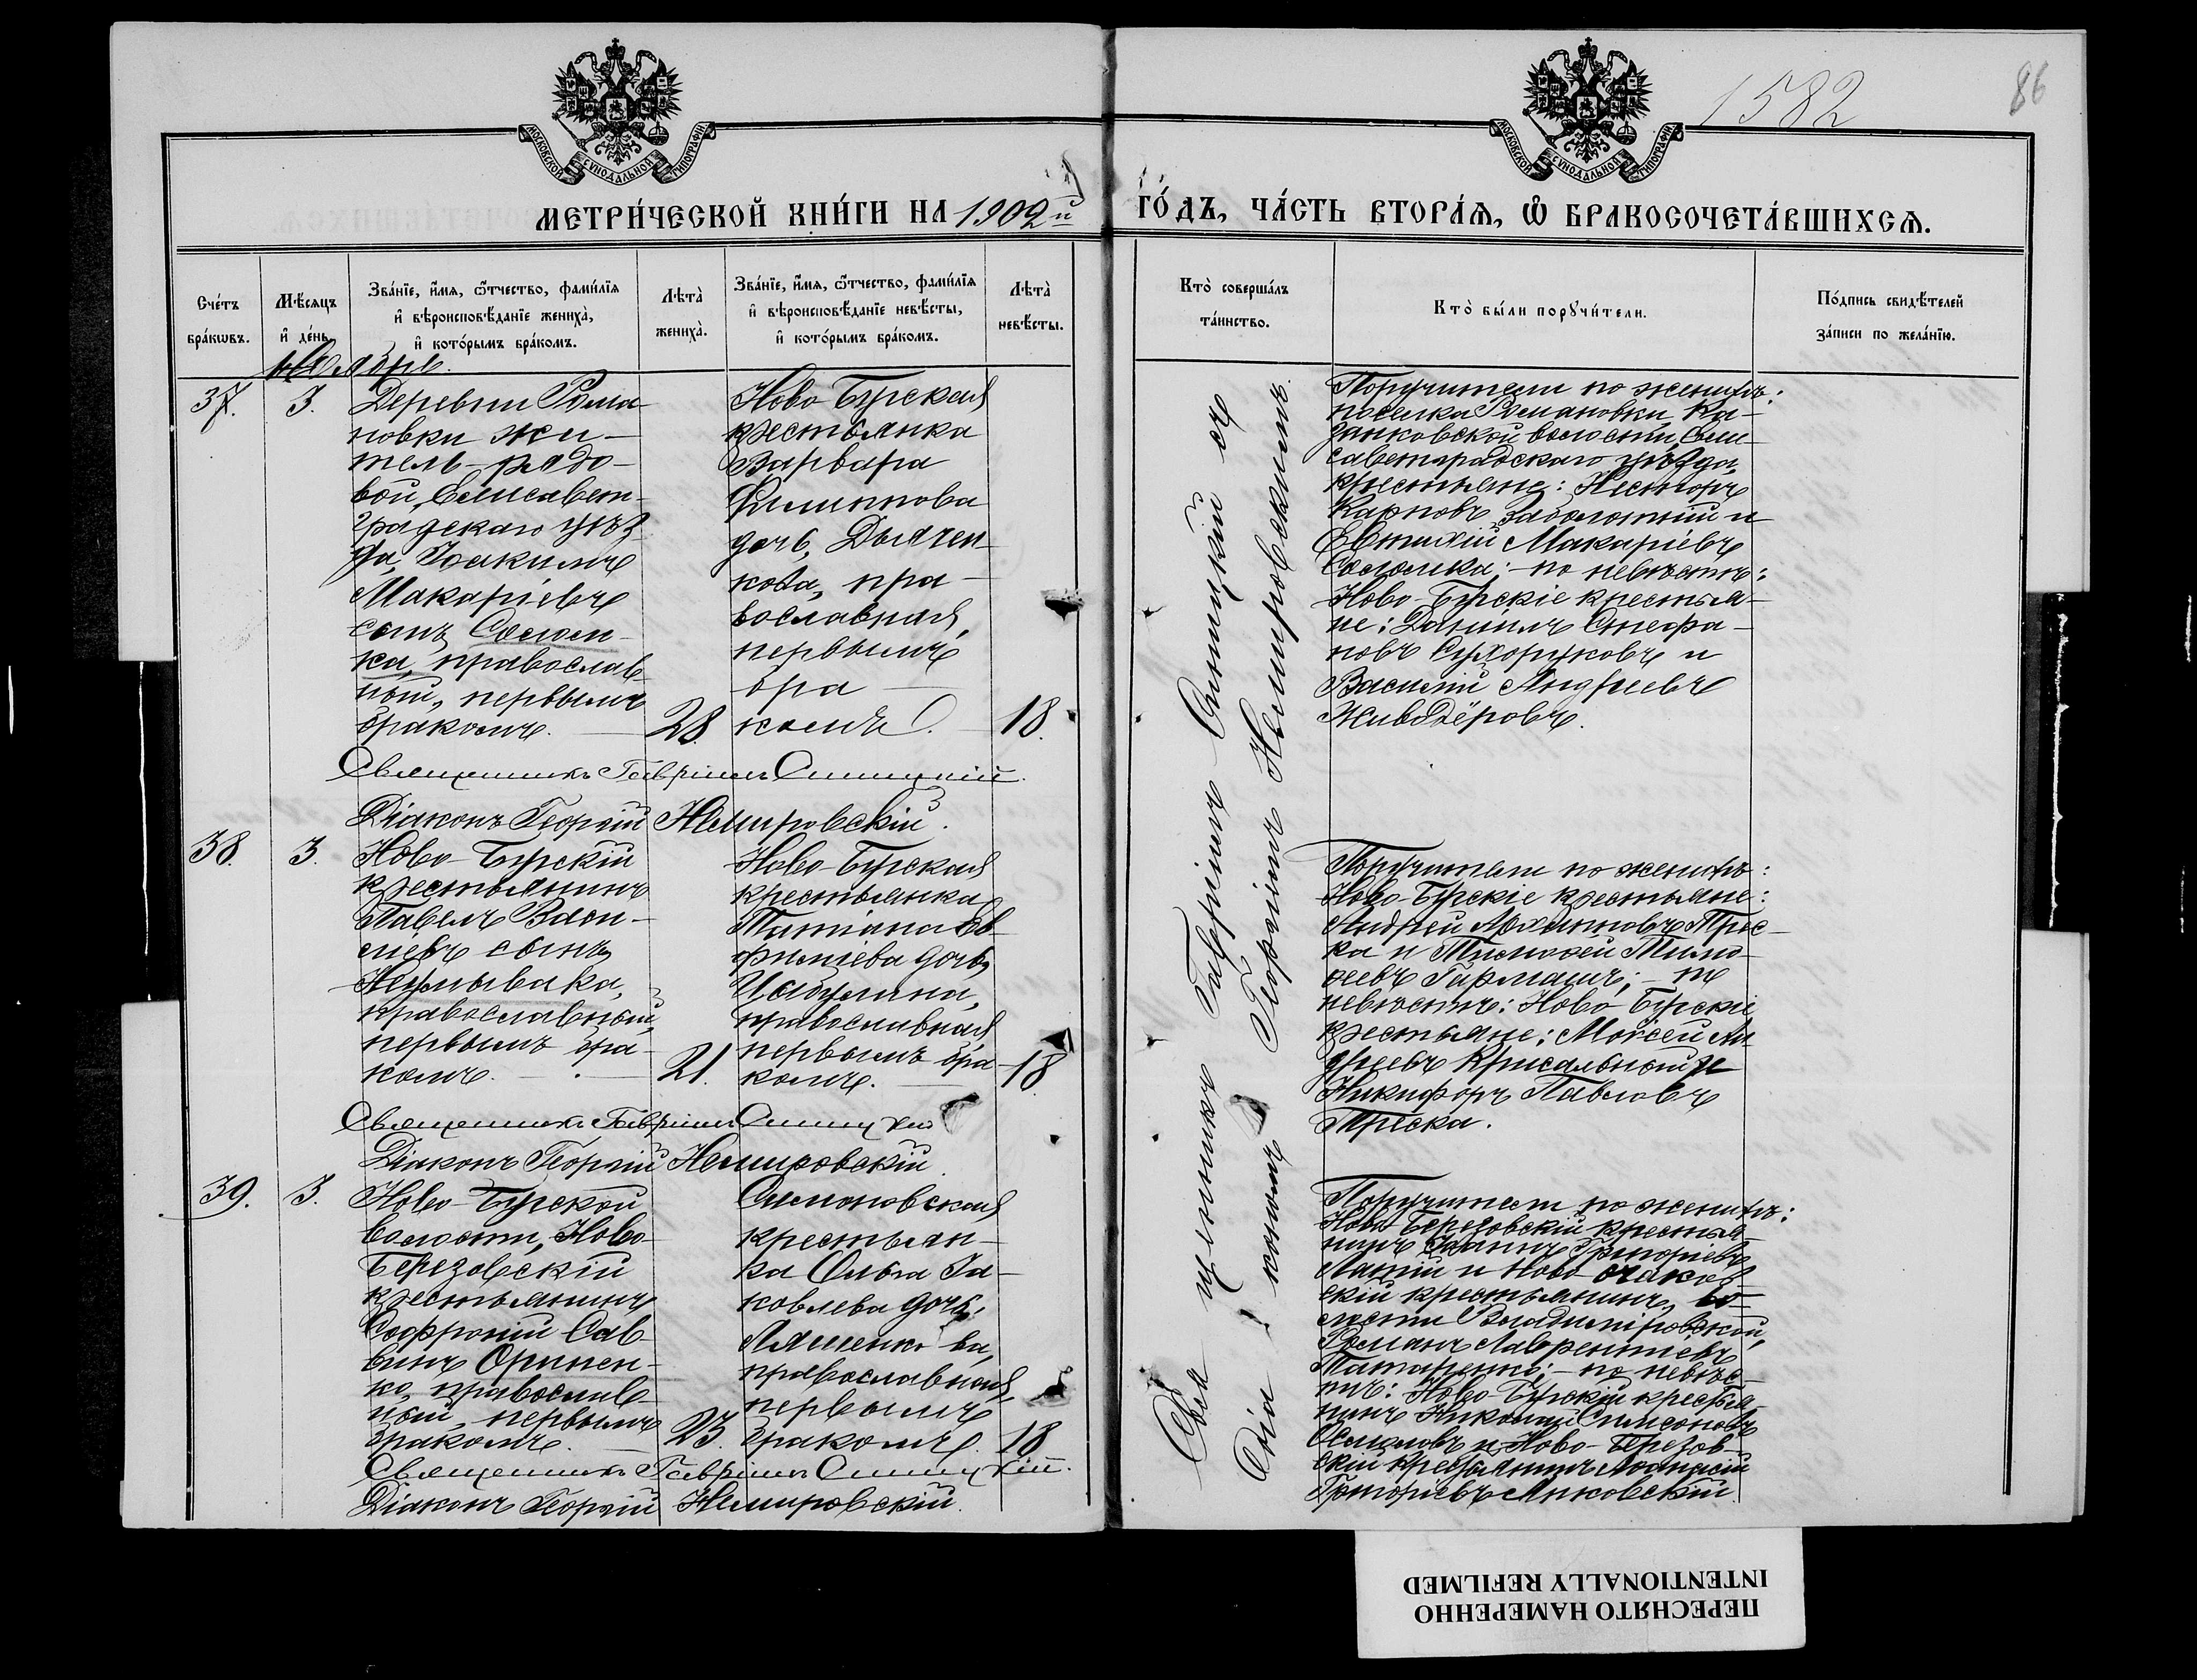 1582
86
МОСКОВСКОЙ СѴНОДАЛЬНОЙ ТИПОГРАФІИ
МОСКОВСКОЙ СѴНОДАЛЬНОЙ ТИПОГРАФІИ
МЕТРИ́ЧЕСКОЙ КНИ́ГИ НА 1909й
ГО́ДЪ, ЧА́СТЬ ВТОРА́Я, Ѡ БРАКОСОЧЕТА́ВШИХСЯ.
Сче́тъ бра́кѡвъ.
Мѣ́сяцъ и҆ де́нь.
Зва́нїе, и҆́мя, ѻ҆́тчество, фами́лїя и҆ вѣроисповѣ́данїе жениха̀, и҆ кото́рымъ бра́комъ.
Лѣта̀ жениха̀.
Зва́нїе, и҆́мя, ѻ҆́тчество, фами́лїя и҆ вѣроисповѣ́данїе невѣ́сты, и҆ кото́рымъ бра́комъ.
Лѣта̀ невѣ́сты.
Кто̀ соверша́лъ та́инство.
Кто̀ бы́ли порꙋчи́тели.
По́дпись свидѣ́телей за́писи по жела́нїю.
Ноябрь.
37.
3.
Деревни Рома-
новки жи-
тель-рядо-
вой, Елисавет-
градскаго уѣз-
да, Іоакимъ
Макаріевъ
сынъ Солом-
ка, православ-
ный, первымъ
бракомъ.
28.
Ново-Бугская
крестьянка
Варвара
Филиппова
дочь, Дьячен-
кова, пра-
вославная,
первымъ
бра-
комъ.
18.
Поручители по женихѣ:
поселка Романовки, Ка-
занковской волости, Ели-
саветградскаго уѣзда,
крестьяне: Несторъ
Карповъ Заболотный и
Евтихій Макаріевъ
Соломка; - по невѣстѣ:
Ново-Бугскіе крестья-
не: Даніилъ Стефа-
новъ Сухоруковъ и
Василій Андреевъ
Живодёровъ.
Священникъ Гавріилъ Синицкій.
Діаконъ Георгій Немировскій.
38.
3.
Ново-Бугскій
крестьянинъ
Павелъ Васи-
ліевъ сынъ
Неумывака,
православный,
первымъ бра-
комъ.
21.
Ново-Бугская
крестьянка
Татіана Ев-
фиміева дочь
Цыбулина,
православная,
первымъ бра-
комъ.
18
Поручители по женихѣ:
Ново-Бугскіе крестьяне:
Андрей Трис-
ка и Тимоѳей Тимо-
ѳеевъ Гармашъ; - по
невѣстѣ: Ново-Бугскіе
крестьяне: Моѵсей Ан-
дреевъ и
Никифоръ Павловъ
Триска.
Священникъ Гавріилъ Синицкій
Діаконъ Георгій Немировскій.
39.
3.
Ново-Бугской
волости, Ново-
Березовскій
крестьянинъ
Софроній Сав-
винъ
православ-
ный, первымъ
бракомъ.
23.
Симоновская
крестьян-
ка Ольга Іа-
ковлева дочь,
Ляшенкова,
православная,
первымъ
бракомъ.
18
Поручители по женихѣ:
Ново-Березовскій крестья-
нинъ Іоаннъ Григоріевъ
и Ново-Очаков-
скій крестьянинъ, во-
лости Владиміровской,
Романъ Лаврентіевъ
Татаренко; - по невѣс-
тѣ: Ново-Бугскій крестья-
нинъ Николай Симеоновъ
и Ново-Березов-
скій крестьянинъ Аѳанасій
Григоріевъ Янковскій
Священникъ Гавріилъ Синицкій.
Діаконъ Георгій Немировскій.
Священникъ Гавріилъ Синицкій съ
Діакономъ Георгіемъ Немировскимъ.
ПЕРЕСНЯТО НАМЕРЕННО
INTENTIONALLY REFILMED